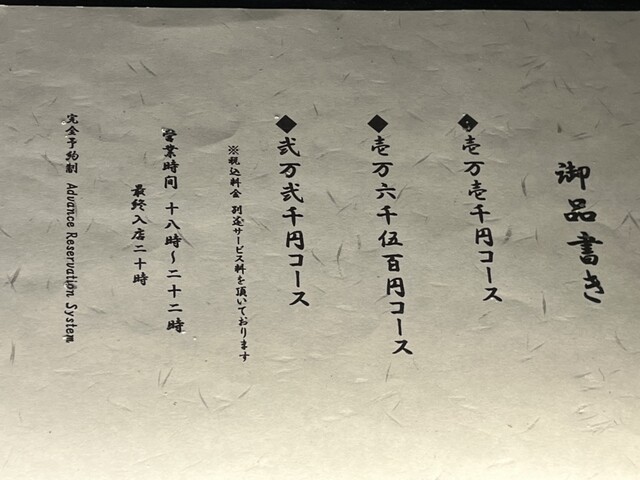 御品書き
◆壱万壱千円コース
◆壱万六千伍百円コース
◆弐万弐千円コース
※税込料金 別途サービス料を頂いております
営業時間 十八時～二十二時
最終入店二十時
完全予約制 Advance Reservation System